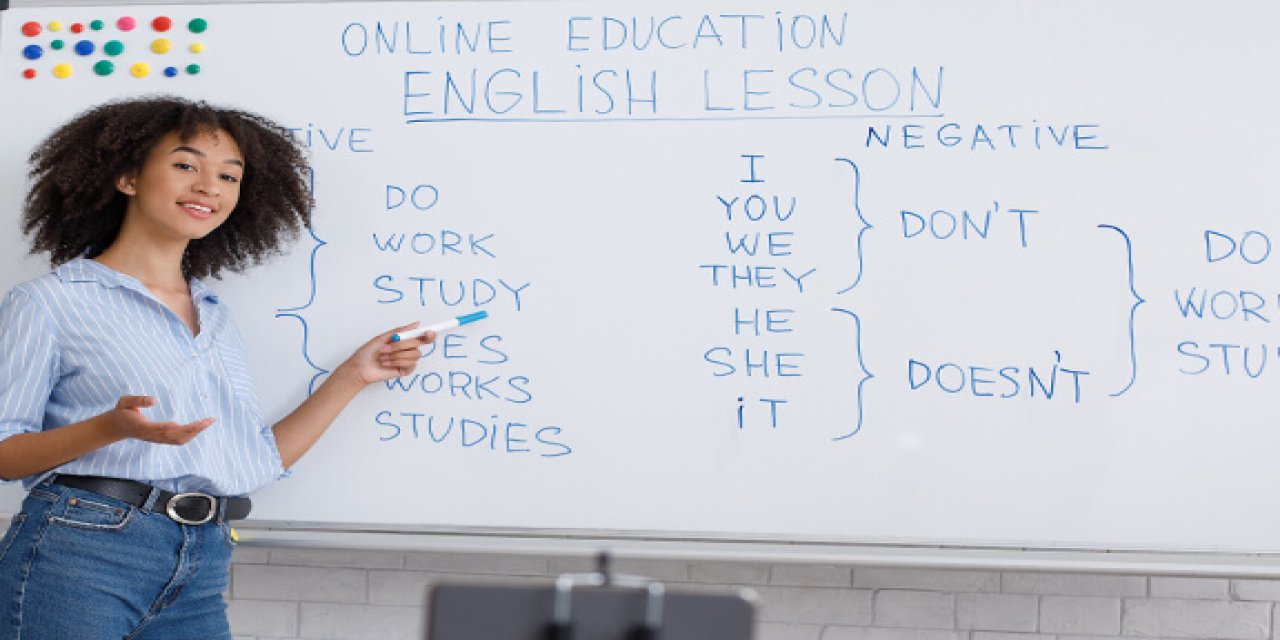 ONLINE EDUCATION
ENGLISH LESSON
TIVE
DO
WORK
STUDY
OES
WORKS
STUDIES
NEGATIVE
I
YOU
WE
THEY
HE
SHE
IT
DON'T
DOESN'T
DO
WOR
STU